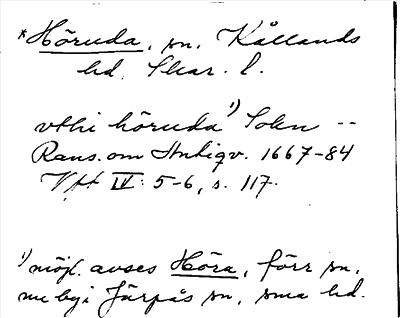 *Höruda, sn, Kållands
hd, Skar. l.
vthi höruda 1) Sokn --
Rans. om Antiqv. 1667-84
VFT IV: 5-6, s. 117.
1) möjl. avses Höra, förr sn,
nu by i Järpås sn, sma hd.